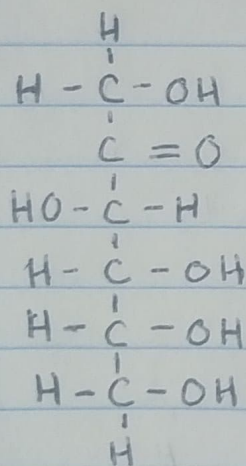 H
H - C - OH
C = O
HO - C - H
H - C - OH
H - C - OH
H - C - OH
H